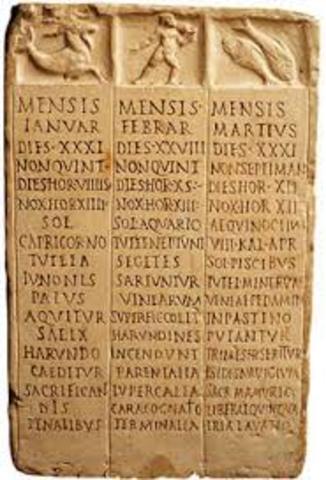 MENSIS
IANVAR
DIES·XXXI
NON·QVINT
DIES HOR VIIIIS
NOX HOR XIIII
SOL
CAPRICORNO
TVTELA
IVNONIS
PALVS
AQVITVR
SALIX
HARVNDO
CAEDITVR
SACRIFICAN
DIS
PENATIBVS
MENSIS·
FEBRAR
DIES·XXVIII
NON QVINT
DIES HOR XS
NOX HOR XIII
SOL AQVARIO
TVTEL NEPTVNI
SEGETES
SARIVNTVR
VINEARVM
SVPERFIC COLIT
HARVNDINES
INCENDVNT
PARENTALIA
LVPERCALIA
CARA COGNATO
TERMINALIA
MENSIS
MARTIVS
DIES·XXXI
NON SEPTIMAN
DIES HOR XII
NOX HOR XII
AEQVINOCTIVM
VIII·KAL·APR
SOL PISCIBVS
TVTEL MINERVAE
IN PASTINO
PVTANTVR
SERITVR
ISIDIS NAVIGIVM
SACR MAMVRIO
LIBERAL QVINQVA
TRIA LAVATIO